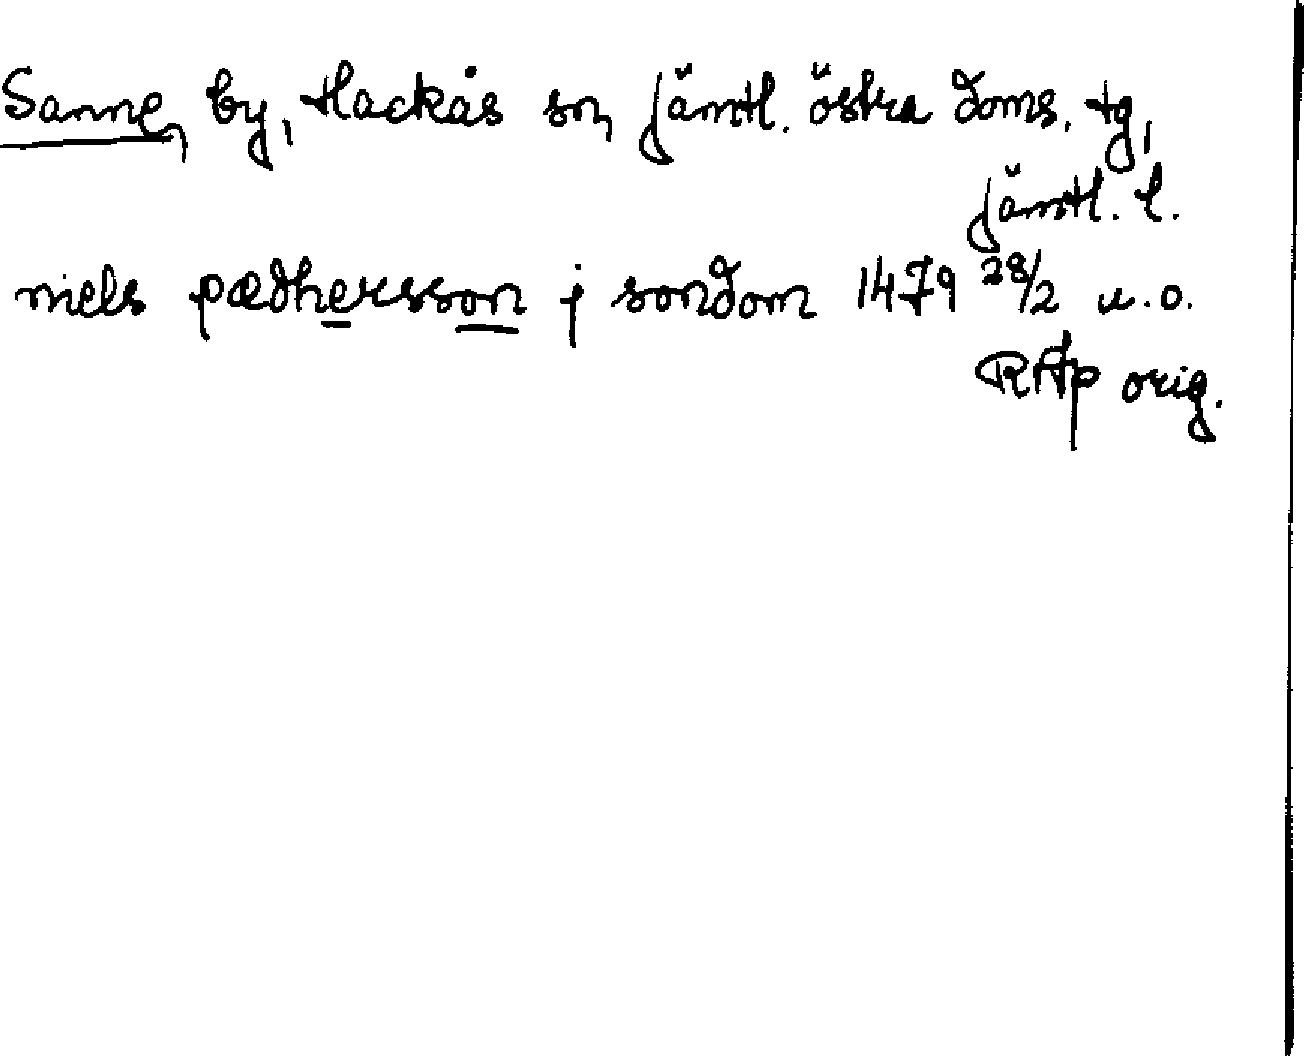 Sanne, by, Hackås sn, Jämtl. östra doms. tg,
Jämtl. l.
niels pædhersson j sondom 1479 28/2 u.o.
RAp orig.